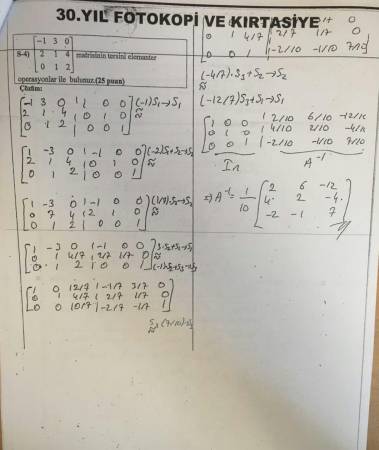 30.YIL FOTOKOPİ VE KIRTASİYE
S-4) [-1 3 0
2 1 4
0 1 2] matrisinin tersini elementer
operasyonlar ile bulunuz.(25 puan)
Çözüm:
[-1 3 0 | 1 0 0
2 1 4 | 0 1 0
0 1 2 | 0 0 1] (-1)S₁→S₁
≈
[1 -3 0 | -1 0 0
2 1 4 | 0 1 0
0 1 2 | 0 0 1] (-2)S₁+S₂→S₂
≈
[1 -3 0 | -1 0 0
0 7 4 | 2 1 0
0 1 2 | 0 0 1] (1/7)S₂→S₂
≈
[1 -3 0 | -1 0 0
0 1 4/7 | 2/7 1/7 0
0 1 2 | 0 0 1] 3.S₂+S₁→S₁
≈
(-1)S₂+S₃→S₃
[1 0 12/7 | -1/7 3/7 0
0 1 4/7 | 2/7 1/7 0
0 0 10/7 | -2/7 -1/7 1]
S₃(7/10)→S₃
0 1 4/7 | 2/7 1/7 0
0 0 1 | -2/10 -1/10 7/10]
(-4/7).S₃+S₂→S₂
(-12/7)S₃+S₁→S₁
≈
[1 0 0 | 2/10 6/10 -12/10
0 1 0 | 4/10 2/10 -4/10
0 0 1 | -2/10 -1/10 7/10]
Iₙ A⁻¹
⇒ A⁻¹ = 1/10 [2 6 -12
4 2 -4
-2 -1 7]